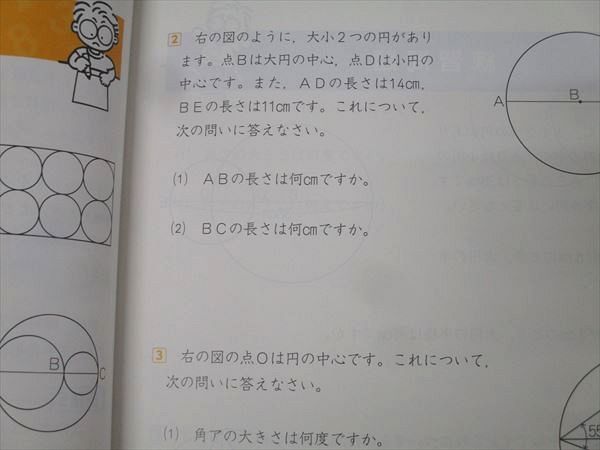 2 右の図のように，大小２つの円があり
ます。点Ｂは大円の中心，点Ｄは小円の
中心です。また，ＡＤの長さは14cm，
ＢＥの長さは11cmです。これについて，
次の問いに答えなさい。
A
B
⑴ ＡＢの長さは何cmですか。
⑵ ＢＣの長さは何cmですか。
B
C
3 右の図の点Ｏは円の中心です。これについて，
次の問いに答えなさい。
⑴ 角アの大きさは何度ですか。
55